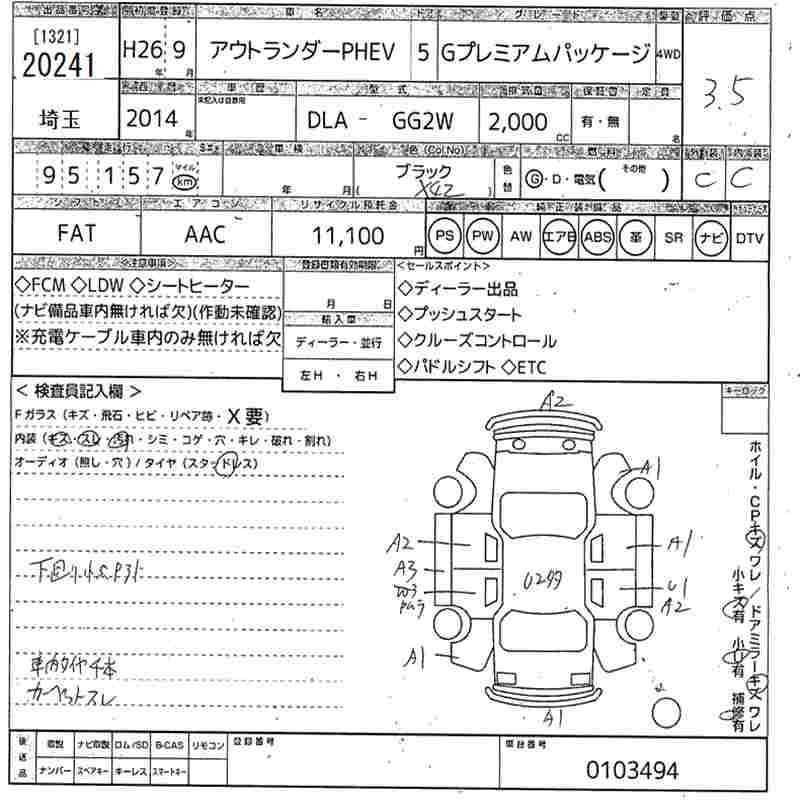 出品番号 初度登録 車名 ドア グレード 駆動 評価点
[1321]
20241
H26年 9月 アウトランダーPHEV 5 Gプレミアムパッケージ 4WD
3.5
車歴 型式 排気量 保証書 定員
埼玉 2014年 未記入は自家用 DLA - GG2W 2,000cc 有・無 名
車検 色(Col.No) 燃料 外装 内装
95,157 マイル km 年 月 ブラック X42 色替 G・D・電気( その他 ) C C
シフト エアコン リサイクル預託金 純正装備品
FAT AAC 11,100円 PS PW AW エアB ABS 革 SR ナビ DTV
※注意事項 登録書類有効期限 <セールスポイント>
◇FCM ◇LDW ◇シートヒーター
(ナビ備品車内無ければ欠)(作動未確認)
※充電ケーブル車内のみ無ければ欠
月 日
輸入車
ディーラー・並行
左H・右H
◇ディーラー出品
◇プッシュスタート
◇クルーズコントロール
◇パドルシフト ◇ETC
キーロック
<検査員記入欄>
Fガラス(キズ・飛石・ヒビ・リペア跡・X要)
内装(キズ・スレ・汚れ・シミ・コゲ・穴・キレ・破れ・割れ)
オーディオ(無し・穴)/タイヤ(スタッドレス)
車内タイヤ4本
カーペットスレ
A2
A1
A2
A1
A3
W3
U1
A2
A1
A1
ホイル・CPキズワレ/ドアミラーキズワレ
小キズ有 小U有 補修有
後送品 取説 ナビ取説 ロム/SD B-CAS リモコン 登録番号 車台番号
ナンバー スペアキー キーレス スマートキー
0103494